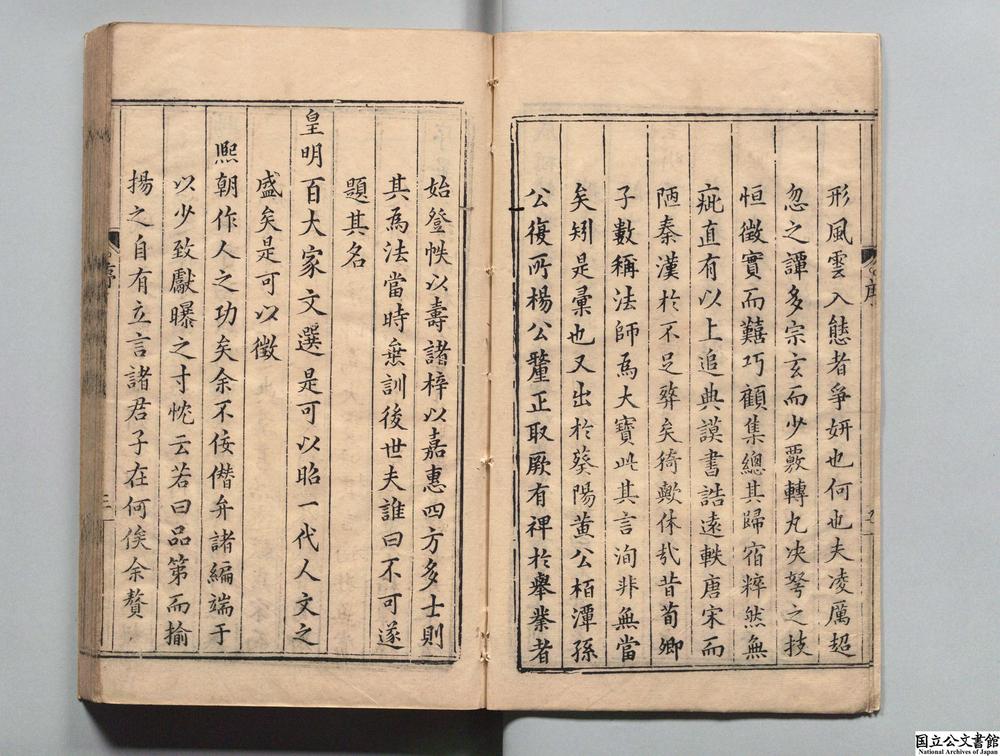 形風雲入態者爭妍也何也夫凌厲超
忽之譚多宗玄而少覈轉丸決弩之技
恒徵實而囏巧顧集總其歸宿粹然無
疵直有以上追典謨書誥遠軼唐宋而
陋秦漢於不足彝矣猗歟休哉昔荀卿
子數稱法師為大寶此其言洵非無當
矣矧是彙也又出於葵陽黃公栢潭孫
公復所楊公釐正取厥有裨於舉業者
始登帙以壽諸梓以嘉惠四方多士則
其為法當時垂訓後世夫誰曰不可遂
題其名
皇明百大家文選是可以昭一代人文之
盛矣是可以徵
熙朝作人之功矣余不佞僭弁諸編端于
以少致獻曝之寸忱云若曰品第而揄
揚之自有立言諸君子在何俟余贅
序
序
三
国立公文書館
National Archives of Japan